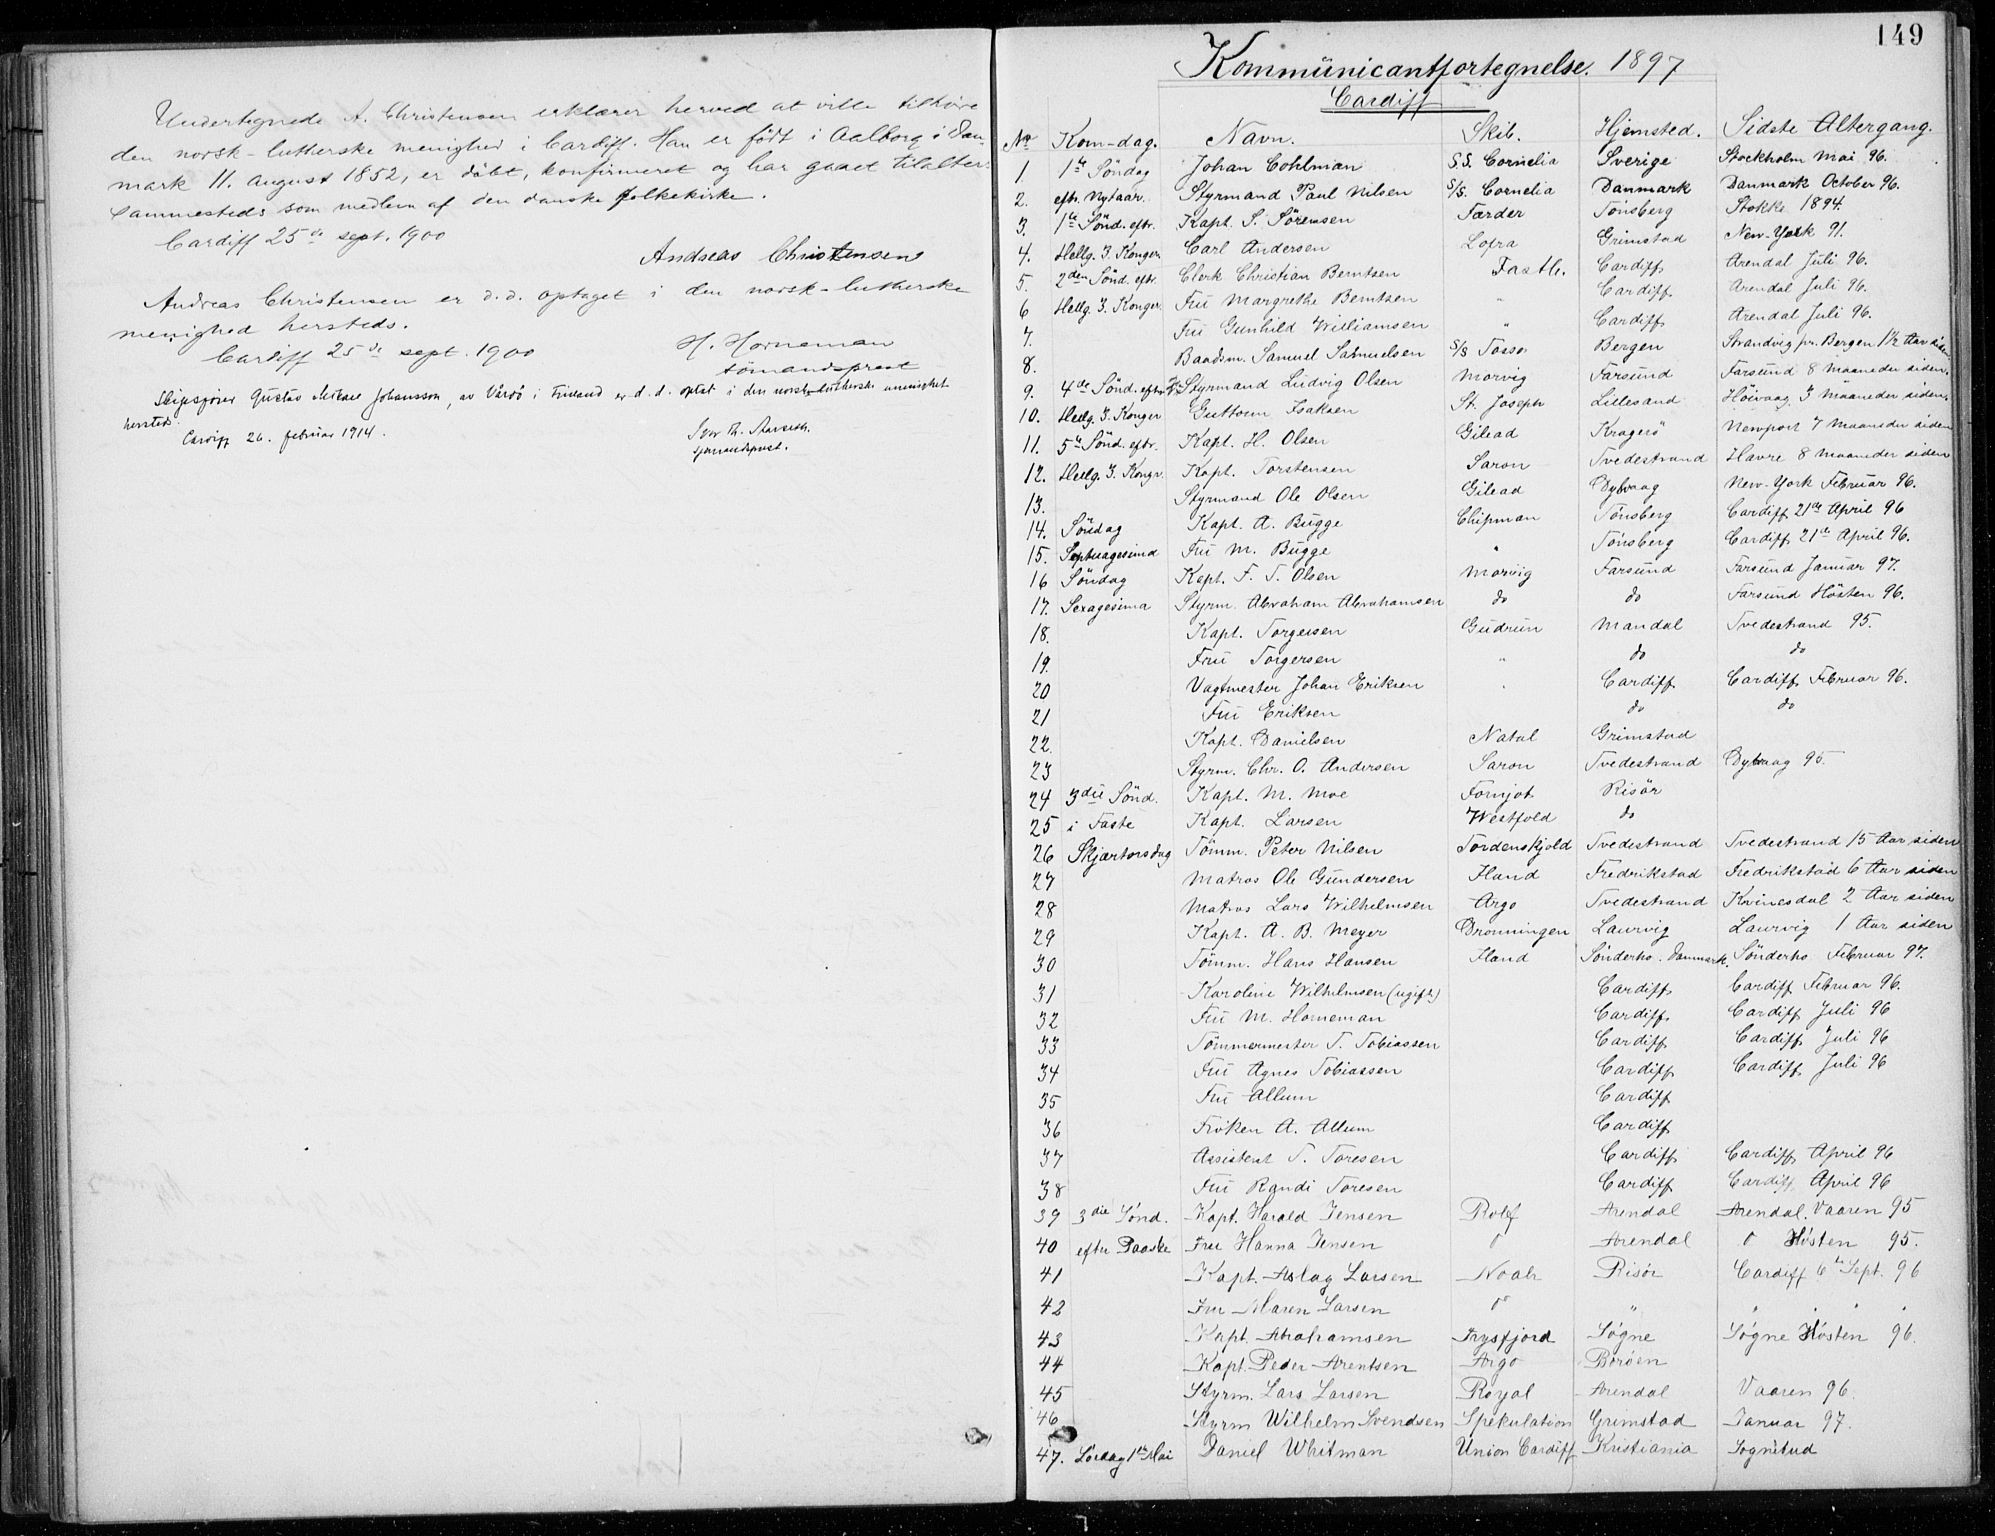 Undertegnede A. Christensen erklærer herved at ville tilhøre
den norsk-lutherske menighed i Cardiff. Han er født i Aalborg i Dan-
mark 11. august 1852, er døbt, konfirmeret og har gaaet til alter
sammesteds som medlem af den danske folkekirke.
Cardiff 25de sept. 1900
Andreas Christensen
Andreas Christensen er d.d. optaget i den norsk-lutherske
menighed hersteds.
Cardiff 25de sept. 1900
H. Horneman
sömandsprest
Skipsfører Gustav Mikael Johansson, av Vårdö i Finland er d.d. optat i den norsk-lutherske menighet
hersteds.
Cardiff 26. februar 1914.
sjømandsprest.
149
Kommünicantfortegnelse. 1897
Cardiff
No Kom-dag. Navn. Skib. Hjemsted. Sidste Altergang.
1 1ste Söndag Johan Cohlman S.S. Cornelia Sverige Stockholm Mai 96.
2. eftr. Nytaar. Styrmand Paul Nilsen S/S. Cornelia Danmark Danmark October 96.
3. 1ste Sönd. eftr. Kapt. S. Sörensen Færder Tönsberg Stokke 1894.
4. Hellg. 3. Konger Carl Andersen Lofra Grimstad New-York 91.
5. 2den Sönd. eftr. Clerk Christian Berntsen Fastl. Cardiff Arendal Juli 96.
6 Hellg. 3. Konger. Frü Margrethe Berntsen " Cardiff Arendal Juli 96.
7. Frü Gunhild Williamsen " Cardiff Arendal Juli 96.
8. Baadsm. Samuel Samuelsen S/S Tosso Bergen Strandvig pr. Bergen 1 1/2 Aar siden.
9. 4de Sönd. eftr. Styrmand Ludvig Olsen Morvig Farsund Farsund 8 maaneder siden.
10. Hellg. 3. Konger Guttorm Isaksen St. Joseph Lillesand Höivaag 3 Maaneder siden.
11. 5te Sönd. eftr. Kapt. H. Olsen Gilead Kragerö Newport 7 Maaneder siden
12. Hellg. 3. Kongr. Kapt. Torstensen Saron Tvedestrand Havre 8 Maaneder siden
13. Styrmand Ole Olsen Gilead Dybvaag New-York Februar 96.
14. Söndag Kapt. A. Bügge Chipman Tönsberg Cardiff 21de April 96
15. Septuagesima Frü M. Bügge " Tönsberg Cardiff 21de April 96.
16 Söndag Kapt. F. T. Olsen Morvig Farsund Farsund Januar 97.
17. Sexagesima Styrm. Abraham Abrahamsen do do Farsund Hösten 96.
18. Kapt. Torgersen Gudrün Mandal Tvedestrand 95.
19. Frü Torgersen " do do
20 Vagtmester Johan Eriksen " Cardiff Cardiff Februar 96.
21 Frü Eriksen do do
22. Kapt. Danielsen Natal Grimstad
23 Styrm. Chr. O. Andersen Saron Tvedestrand Dybvaag 95.
24 3die Sönd. Kapt. M. Moe Fornjot Risör
25 i Faste Kapt. Larsen Westfold do
26 Skjærtorsdag Tömm. Peter Nilsen Tordenskjold Tvedestrand Tvedestrand 15 Aar siden
27 Matros Ole Gündersen Hand Fredrikstad Fredrikstad 6 Aar siden
28 Matros Lars Wilhelmsen Argo Tvedestrand Kvinesdal 2 Aar siden
29 Kapt. A. B. Meyer Dronningen Laurvig Laurvig 1 Aar siden
30 Tömm. Hans Hansen Hand Sönderho. Danmark. Sönderho Februar 97.
31 Karoline Wilhelmsen (ugift) Cardiff Cardiff Februar 96.
32 Frü M. Horneman Cardiff Cardiff Juli 96
33 Tömmermester T. Tobiassen Cardiff Cardiff Juli 96
34 Frü Agnes Tobiassen Cardiff Cardiff Juli 96
35 Frü Allum Cardiff
36 Fröken A. Allum Cardiff
37 Assistent T. Toresen Cardiff Cardiff April 96
38 Frü Randi Toresen Cardiff Cardiff April 96
39 3die Sönd. Kapt. Harald Jensen Rolf Arendal Arendal. Vaaren 95
40 efter Paaske Fru Hanna Jensen Arendal Hösten 95.
41 Kapt. Aslag Larsen Noah Risör Cardiff 6te Sept. 96
42 Fru Maren Larsen " " " "
43 Kapt. Abrahamsen Trysfjord Søgne Søgne Høsten 96.
44 Kapt. Peder Arentsen Argo Borøen
45 Styrm. Lars Larsen Royal Arendal Vaaren 96.
46 Styrm Wilhelm Svendsen Spekulation Grimstad Januar 97.
47. Lördag 1ste Mai Daniel Whitman Union Cardiff Kristiania Sognebud